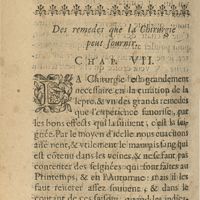 Des remedes que la Chirurgie
peut fournir.
CHAP. VII.
LA Chirurgie est grandement
necessaire en la curation de la
lepre, & vn des grands remedes
que l'experience fauorise, par
les bons effects qui la suiuent, c'est la sai-
gnée. Par le moyen d'icelle nous euacuons
&
nent, & vtilement le mauuais sang qui
est côtenu dans les veines, & ne faut pas
contenter des seignées qui sont faites au
Printemps, & en l'Automne: mais il les
faut reiterer assez souuent, & dans le
courant de ces saisons, quand les indica-